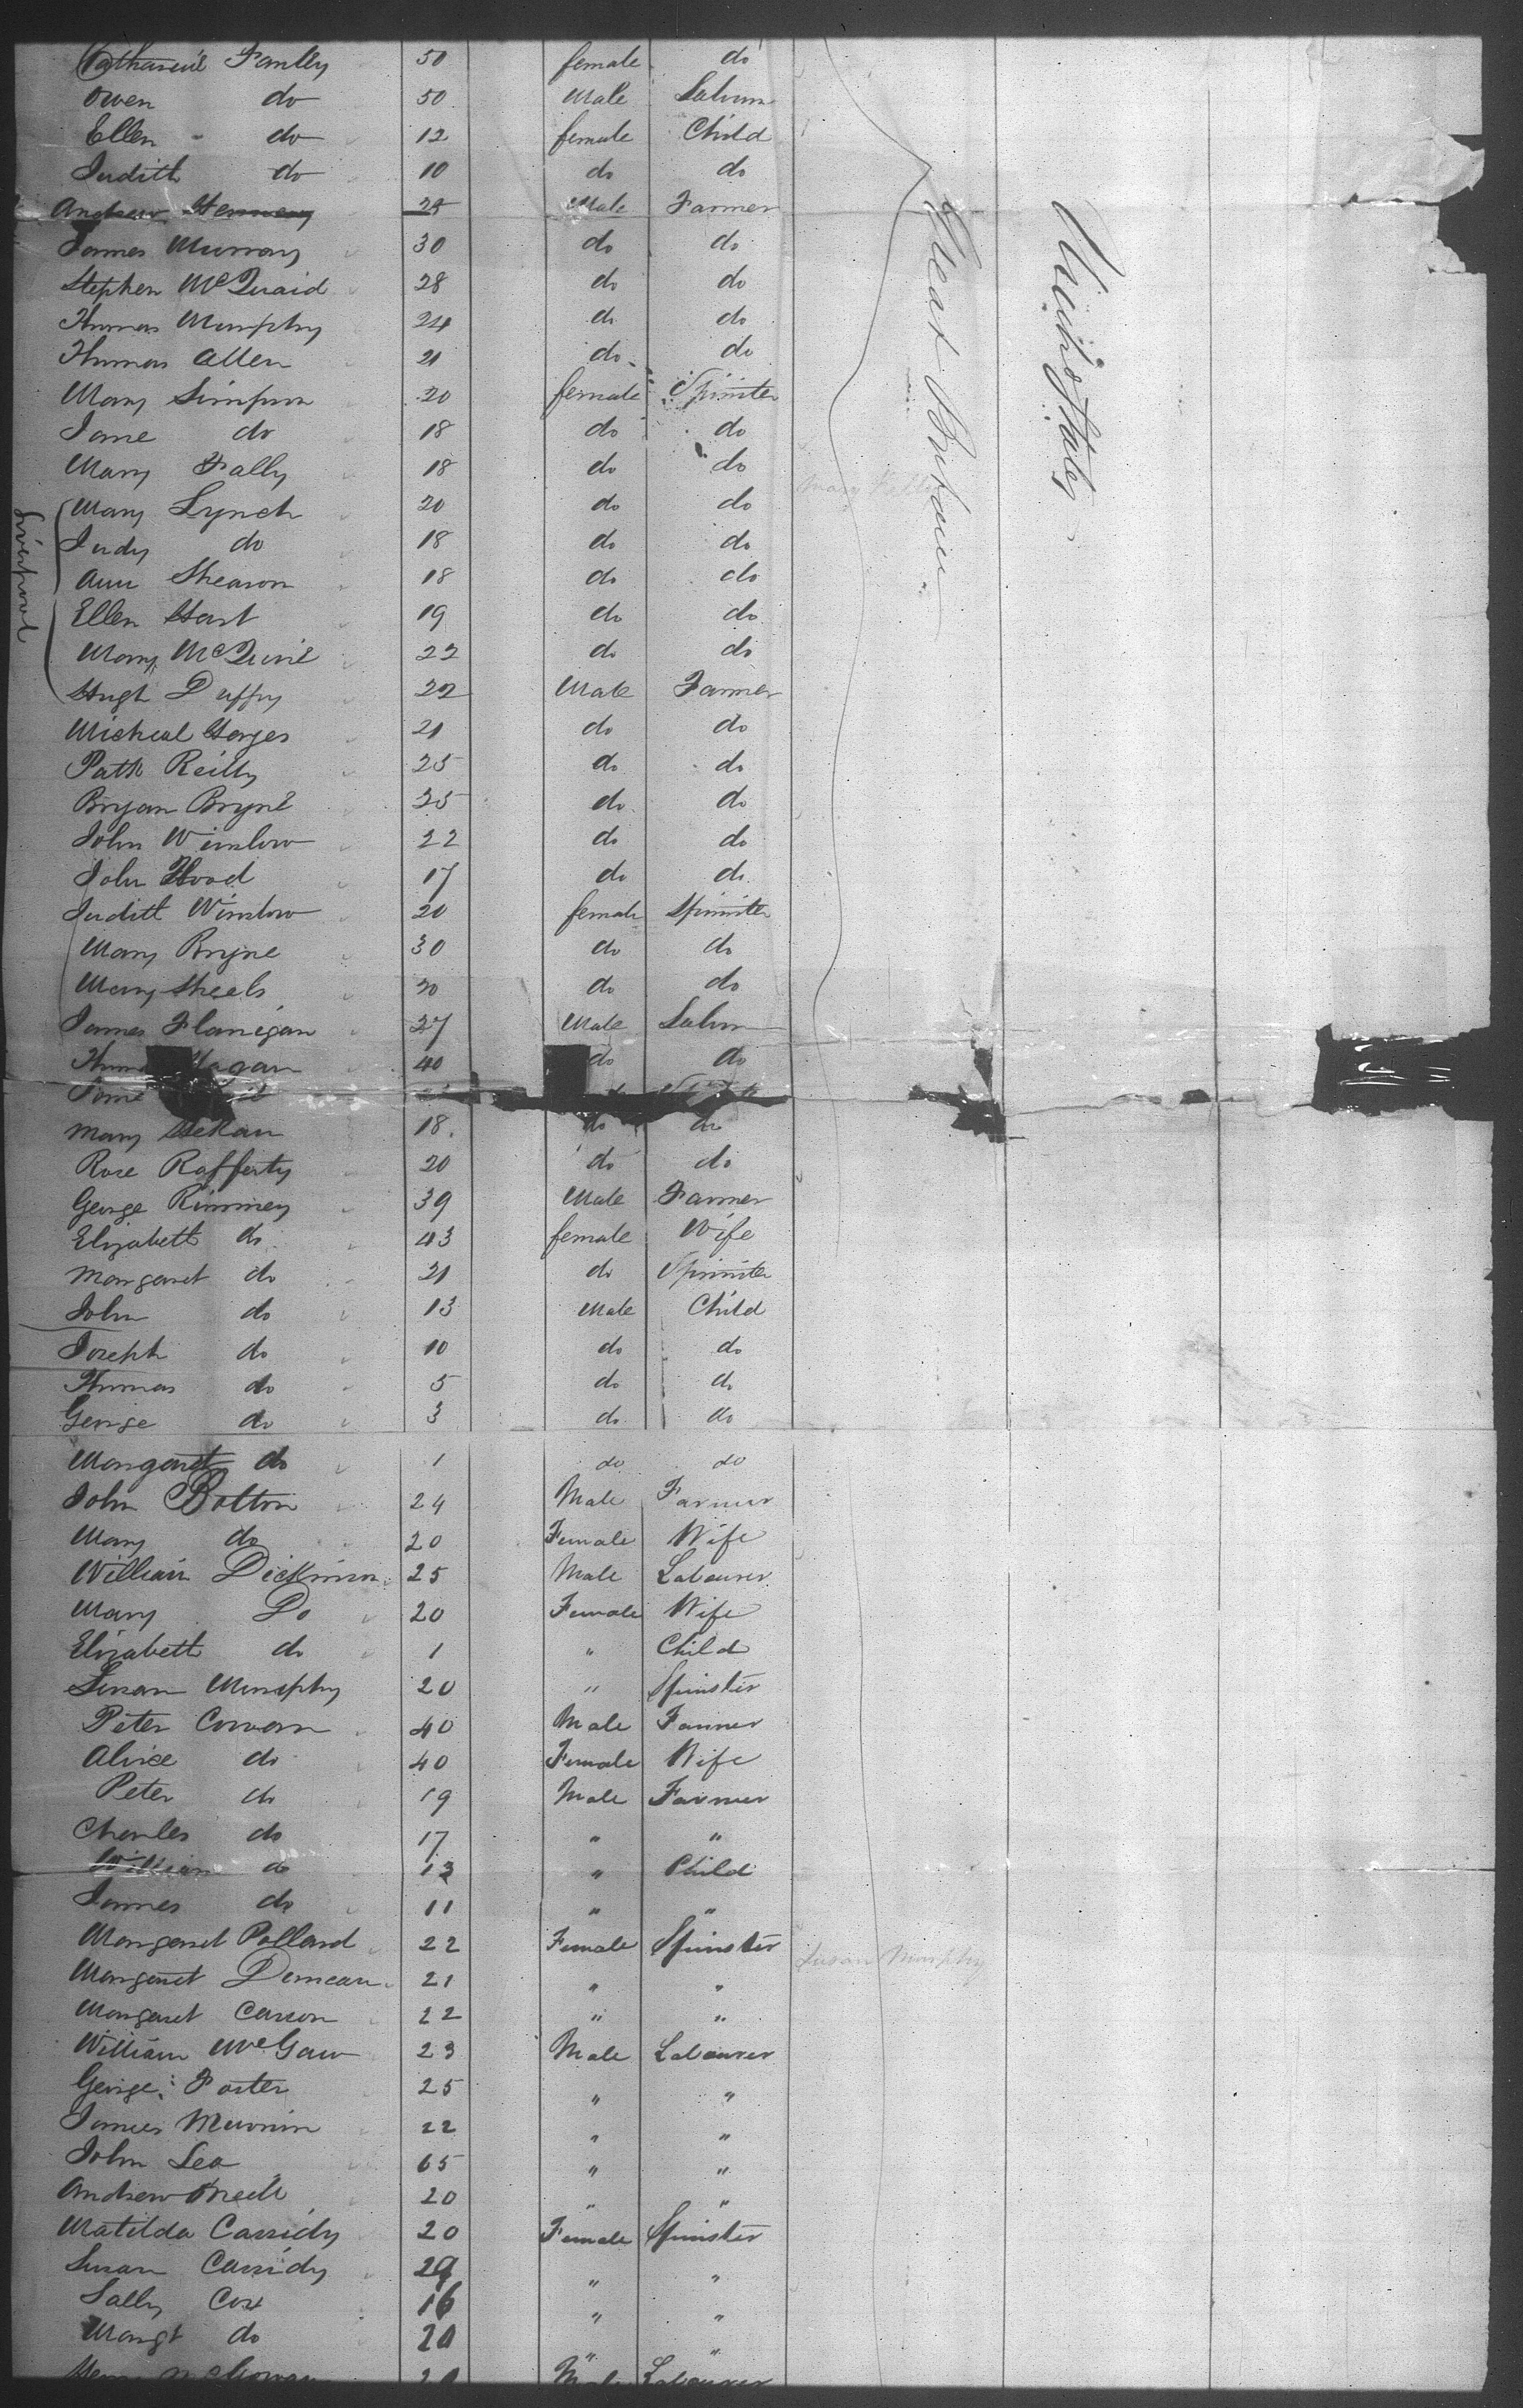 Catharine Fanlly 50 female do
Owen do 50 Male Labour
Ellen do 12 female Child
Judith do 10 do do
Andrew 25 Male Farmer
James Murray 30 do do
Stephen McQuaid 28 do do
Thomas Murphy 24 do do
Thomas Allen 21 do do
Mary Simpson 20 female Spinster
Jane do 18 do do
Mary Fally 18 do do
Mary Lynch 20 do do
Judy do 18 do do
Ann Shearon 18 do do
Ellen Hart 19 do do
Mary 22 do do
Hugh Duffy 22 Male Farmer
Micheal 21 do do
Patk Reilly 25 do do
Bryan Bryne 25 do do
John Winslow 22 do do
John Hood 17 do do
Judith Winslow 20 female Spinster
Mary Bryne 30 do do
Mary Sheels 20 do do
James Flanigan 27 Male Labour
40 do do
Jane
Mary 18 do do
Rose Rafferty 20 do do
George Rimmey 39 Male Farmer
Elizabeth do 43 female Wife
Margaret do 21 do Spinster
John do 13 Male Child
Joseph do 10 do do
Thomas do 5 do do
George do 3 do do
Margaret do 1 do do
John Bolton 24 Male Farmer
Mary do 20 Female Wife
William Dickinson 25 Male Labourer
Mary Do 20 Female Wife
Elizabeth do 1 " Child
Susan Murphy 20 " Spinster
Peter Cowan 40 Male Farmer
Alice do 40 Female Wife
Peter do 19 Male Farmer
Charles do 17 " "
William do 13 " Child
James do 11 " "
Margaret Pollard 22 Female Spinster
Margaret Duncan 21 " "
Margaret Carson 22 " "
William McGaw 23 Male Labourer
George Foster 25 " "
James 22 " "
John Lea 65 " "
Andrew 20 " "
Matilda Cassidy 20 Female Spinster
Susan Cassidy 29 " "
Sally Cox 16 " "
Margt do 20 " "
McGowan Male Labourer
Liverpool
Great Britain
United States
Susan Murphy